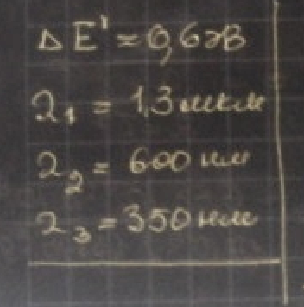 ΔE' = 0,6 эВ
λ₁ = 1,3 мкм
λ₂ = 600 нм
λ₃ = 350 нм